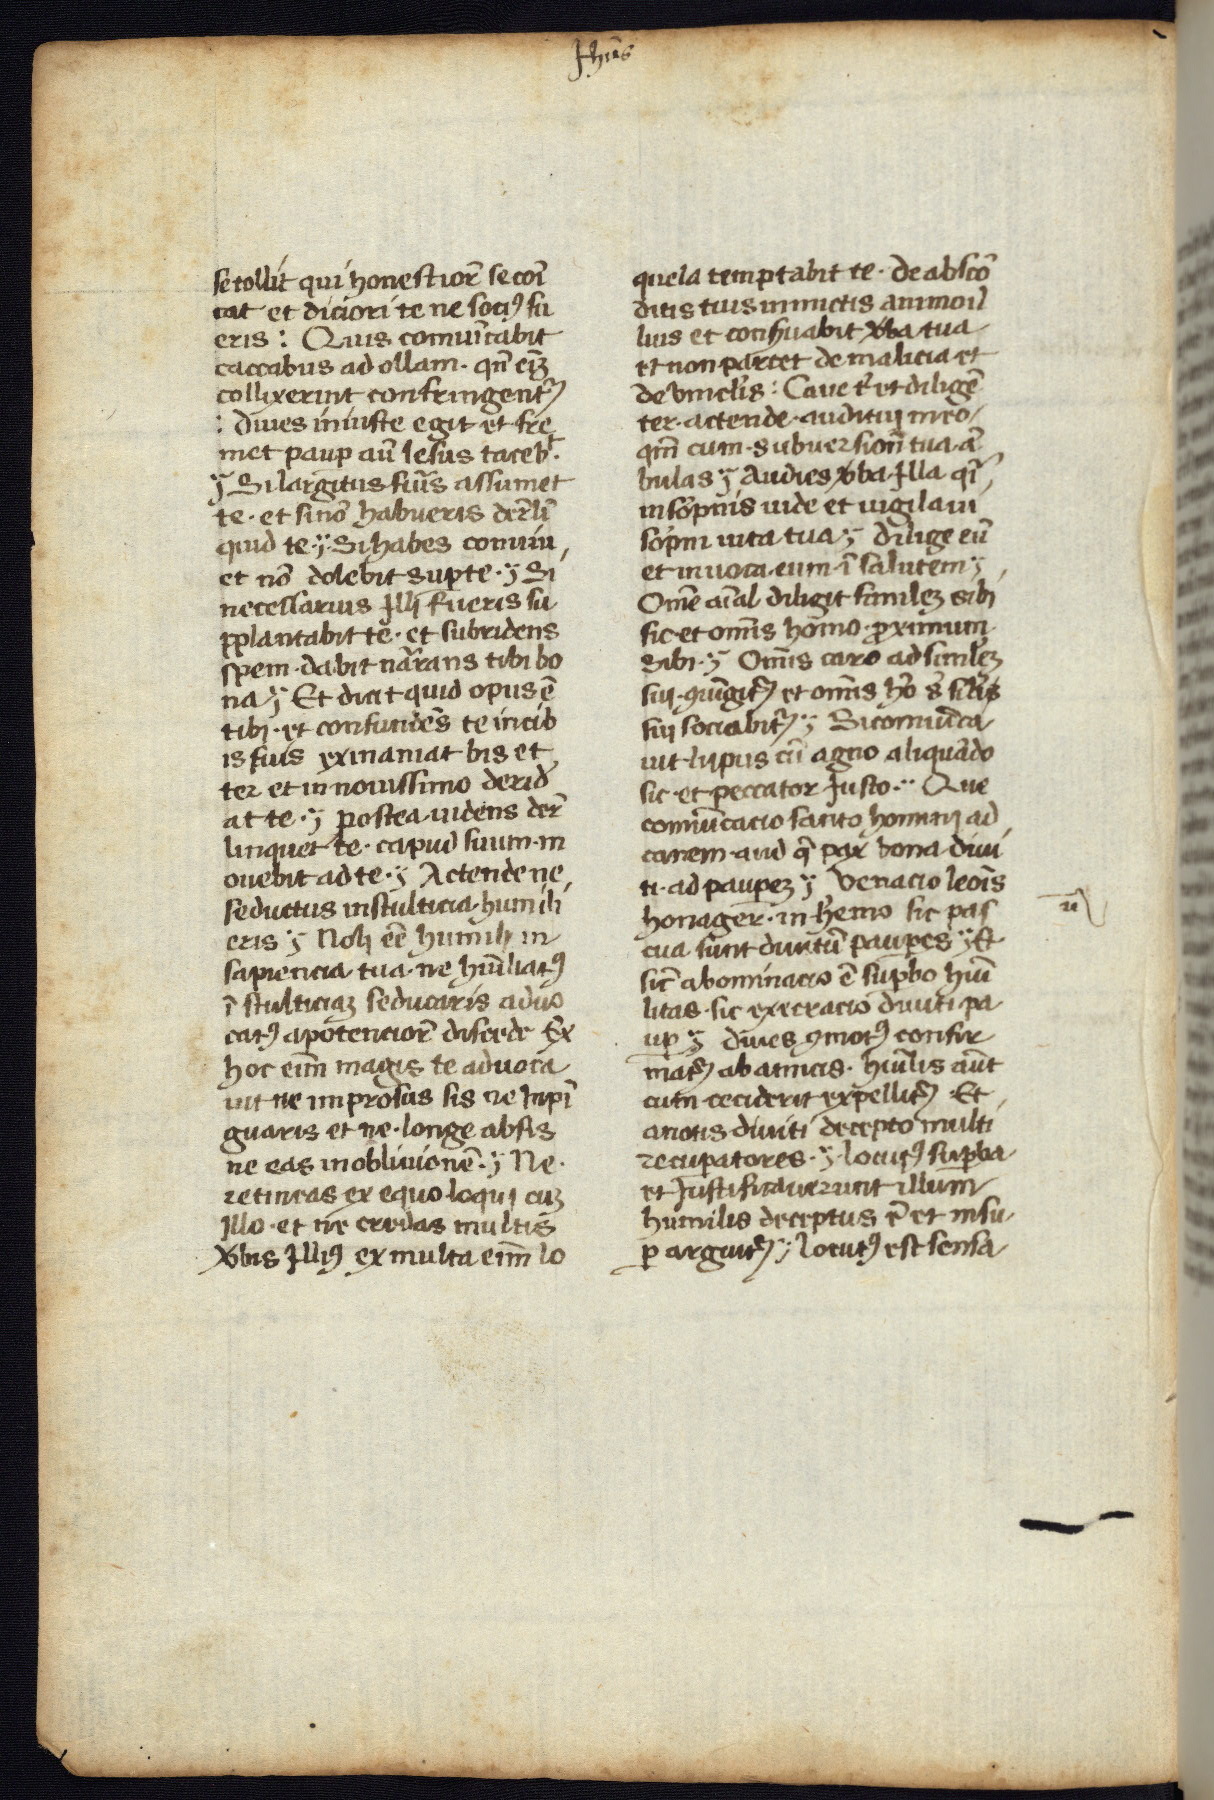 Jhūs
se tollit qui honestior̄ se coī
cat et diciori te ne soci⁹ fu
eris : Quis comuīcabit
caccabus ad ollam · qn̄ eīȝ
collixerint confringent᷑
: Diues iniuste egit et fre
met paup aū lesus tacebᵗ ·
ÿ Si largitus fuīs assumet
te · et si nō habueris der̄li
quid te · ÿ · Si habes conuiu
et nō dolebit sup te · ÿ Si
necessarius Illi fueris su
pplantabit te · et subridens
spem · dabit nār̄ans tibi bo
na ÿ Et dicit quid opus ē
tibi · et confundēs te in cib
is suis exinaniat bis et
ter et in nouissimo derid̄
at te · ÿ postea uidens der̄
linquet te · capud suum · m
ouebit ad te · ÿ Actende ne
seductus in stulticia · humili
eris ÿ Noli eē humilis in
sapiencia tua · ne hūliat⁹
ī stulticiaȝ seducaris aduo
cat⁹ a potencior̄ discede Ex
hoc eim̄ magis te aduoca
uit ne improsus sis ne īnpī
guaris et ne · longe absis
ne eas in obliuionē · ÿ Ne ·
retineas ex equo loqui cuȝ
Illo · et ne credas multis
v̄bis Illi⁹ ex multa eim̄ lo
quela temptabit te · de abscō
ditis tuis inmictis animo il
lius et conseruabit v̄ba tua
et non parcet de malicia et
de vincl̄is : Caue t̄ et diligē
ter · actende · auditui meo
qm̄ cum · subuersion̄ tua · ā
bulas ÿ Audies v̄ba · Illa qī
in sōpnis uide et uigilaui
sōpni uita tua ÿ Dilige eū
et inuoca · eum · ī salutem ÿ
Omē aīal diligit simileȝ sibi
sic · et omīs homo · proximum ·
Sibi · ÿ Omīs caro ad simileȝ
sui · ꝯiūgit᷑ et omīs hō s̄ sil̄is
sui sociabit᷑ ÿ Si comūca
uit · lupus cū agno aliquādo
sic · et peccator Justo · ÿ Que
comūcacio sancto homini ad
canem · aud q̄ pax bona · diui
ti · ad paupeȝ ÿ Venacio leoīs
honager · in h̄emo sic pas
cua sunt diuitū paupes ÿ Et
sic̄ abominacio ē supbo hūi
litas · sic execracio diuiti pa
up ÿ Diues ꝯmot⁹ confir
mat᷑ ab amicis · hūlis aūt
cum · ceciderit expellit᷑ · Et
a notis · diuiti decepto multi
recuparatores · ÿ · locut⁹ supba
et Justificauerunt illum
humilis deceptus ē et insu
p arguit᷑ ÿ locut⁹ est sensa
ū